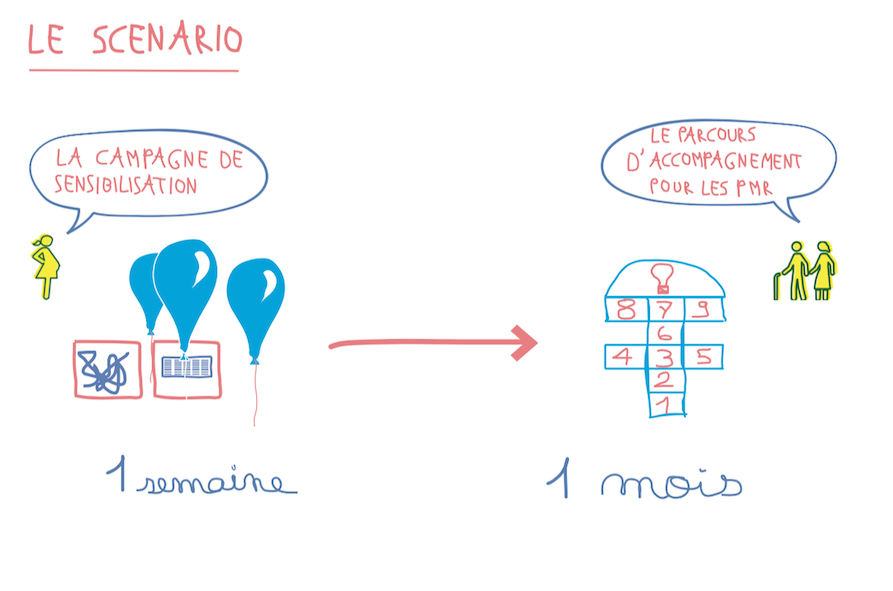 LE SCENARIO
LA CAMPAGNE DE
SENSIBILISATION
LE PARCOURS
D'ACCOMPAGNEMENT
POUR LES PMR
8 7 9
6
4 3 5
2
1
1 semaine
1 mois